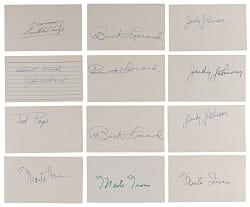 Buck Leonard
Judy Johnson
Buck Leonard
Judy Johnson
Ted Page
Buck Leonard
Judy Johnson
Monte Irvin
Monte Irvin
Monte Irvin